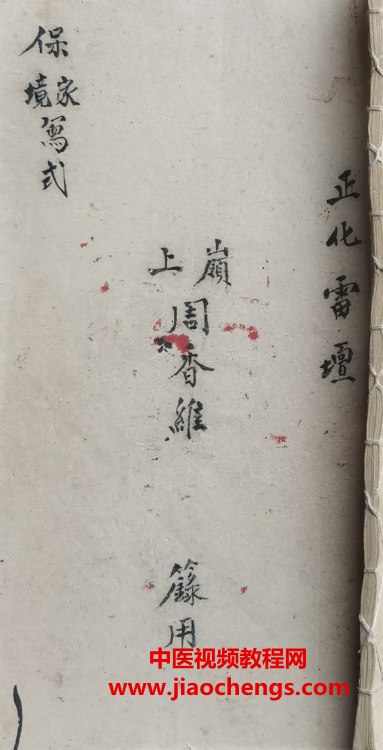 正化雷壇
嶺上周香維
籙用
保家境冩式
中医视频教程网
www.jiaochengs.com